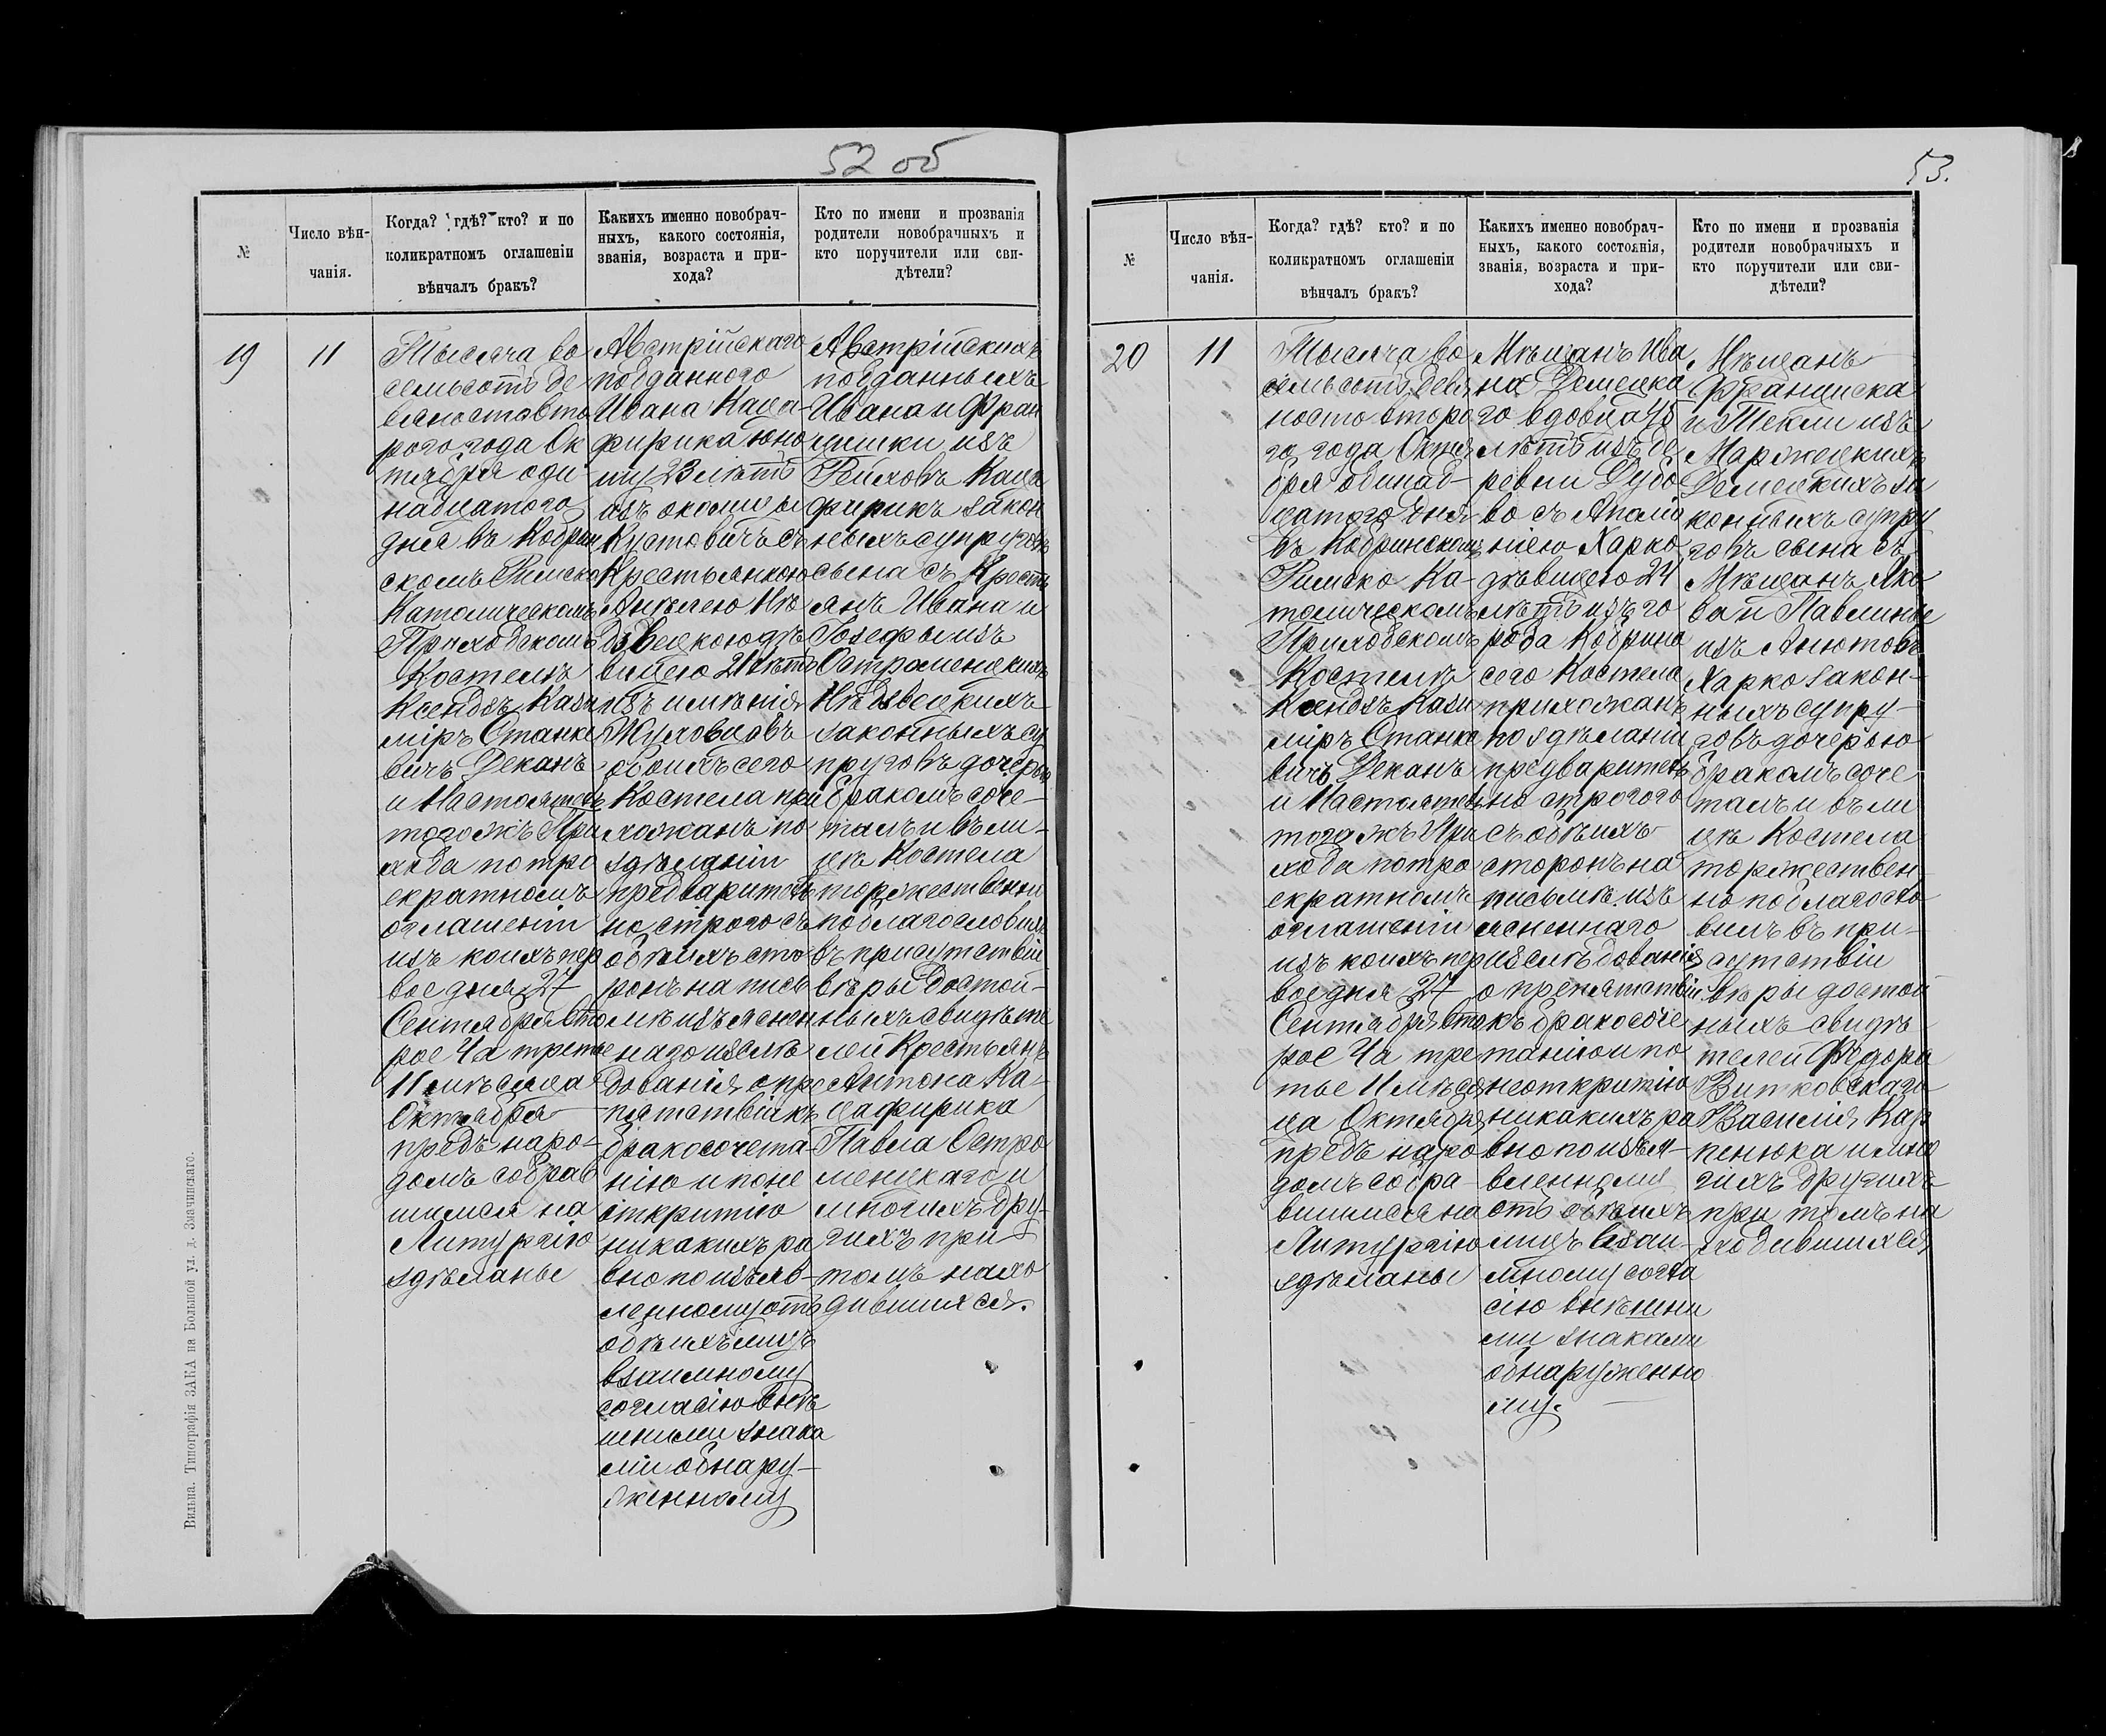 52 об
№
Число вѣн-
чанія.
Когда? гдѣ? кто? и по
коликратномъ оглашеніи
вѣнчалъ бракъ?
Какихъ именно новобрач-
ныхъ, какого состоянія,
званія, возраста и при-
хода?
Кто по имени и прозванія
родители новобрачныхъ и
кто поручители или сви-
дѣтели?
19
11
Тысяча во
семьсотъ де
вяноставто
рого года Ок
тября оди
надцатого
дня въ Кобрин
скомъ Римско
Католическомъ
Приходскомъ
Костелѣ
Ксендзъ Кази
міръ Станке
вичъ Деканъ
и Настоятель
тогожъ При
хода по тро
екратномъ
оглашеніи
изъ коихъ пер
вое дня 27
Сентября вто
рое 4 а третье
11 мѣсяца
Октября
предъ наро-
домъ собрав
шимся на
Литургію
здѣланы
Австрійскаго
подданного
Ивана Каца-
фирика юно
шу 23 лѣтъ
изъ околицы
Кустовичъ съ
Крестьянкою
Анѣлею Нѣ
дзвецкою дѣ
вицею 21 лѣтъ
изъ имѣнія
Жуховцовъ
обоихъ сего
Костела при
хожанъ по
здѣланіи
предваритель
но строго съ
обѣихъ сто
ронъ на пись
мѣ изъяснен
надо изслѣ
дованія о пре
пятствіи къ
бракосочета-
нію и по не
откритію
никакихъ ра
вно по изъяв-
ленному отъ
обѣихъ лицъ
взаимному
согласію внѣ
шними знака
ми обнару-
женному
Австрійскихъ
подданныхъ
Ивана и Фран
цишки изъ
Каца
фирикъ закон
ныхъ супруговъ
сына съ Кресть
янъ Ивана и
Іозефы изъ
Остроменцкихъ
Нѣдзвецкихъ
законныхъ су
пруговъ дочерью
бракомъ соче-
талъ и въ ли-
цѣ Костела
торжественно
поблагословилъ
въ присутствіи
вѣры достой-
ныхъ свидѣте
лей Крестьянъ
Антона Ка-
цафирика
Павла Остро
менцкаго и
многихъ дру-
гихъ при
томъ нахо
дившихся.
Вильна. Типографія ЗАКА на Большой ул. д. Змачинскаго.
53.
№
Число вѣн-
чанія.
Когда? гдѣ? кто? и по
коликратномъ оглашеніи
вѣнчалъ бракъ?
Какихъ именно новобрач-
ныхъ, какого состоянія,
званія, возраста и при-
хода?
Кто по имени и прозванія
родители новобрачныхъ и
кто поручители или сви-
дѣтели?
20
11
Тысяча во
семьсотъ девя
носто второ
го года Октя
бря одинад-
цатого дня
въ Кобринскомъ
Римско Ка-
толическомъ
Приходскомъ
Костелѣ
Ксендзъ Кази
міръ Станке
вичъ Деканъ
и Настоятель
тогожъ При
хода по тро
екратномъ
оглашеніи
изъ коихъ пер
вое дня 27
Сентября вто
рое 4 а тре
тье 11 мѣся
ца Октября
предъ наро
домъ собра
вшимся на
Литургію
здѣланы
Мѣщанъ Ива
на Демецка
го вдовца 48
лѣтъ изъ де
ревни Дубо
во съ Аполо
ніею Харко
дѣвицею 24
лѣтъ изъ го
рода Кобрина
сего Костела
прихожанъ
по здѣланіи
предваритель
но строгого
съ обѣихъ
сторонъ на
письмѣ изъ
ясненнаго
изслѣдованія
о препятствіи
къ бракосоче
танію и по
неоткритію
никакихъ ра
вно по изъя-
вленному
отъ обѣихъ
лицъ взаи-
мному согла
сію внѣшни
ми знаками
обнаруженно
му.
Мѣщанъ
Франциска
и Текли изъ
Маржецкихъ
Демецкихъ за
конныхъ супру
говъ сына съ
Мѣщанъ Яко
ва и Павлины
изъ Анютовъ
Харко закон-
ныхъ супру-
говъ дочерью
бракомъ соче
талъ и въ ли
цѣ Костела
торжествен
но поблагосло
вилъ въ при-
сутствіи
вѣры достой
ныхъ свидѣ
телей Федора
Витковскаго
Василія Кар
пенюка и мно
гихъ другихъ
при томъ на
ходившихся